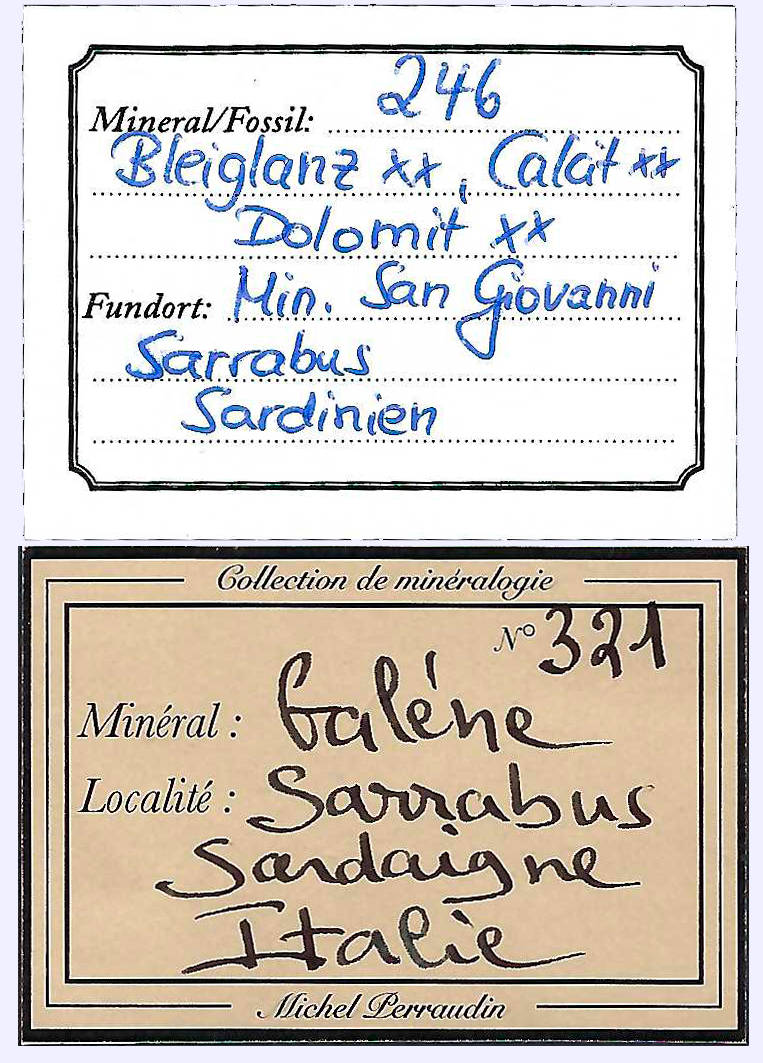 246
Mineral/Fossil:
Bleiglanz xx, Calcit xx
Dolomit xx
Fundort: Min. San Giovanni
Sarrabus
Sardinien
Collection de minéralogie
N° 321
Minéral : Galéne
Localité : Sarrabus
Sardaigne
Italie
Michel Perraudin